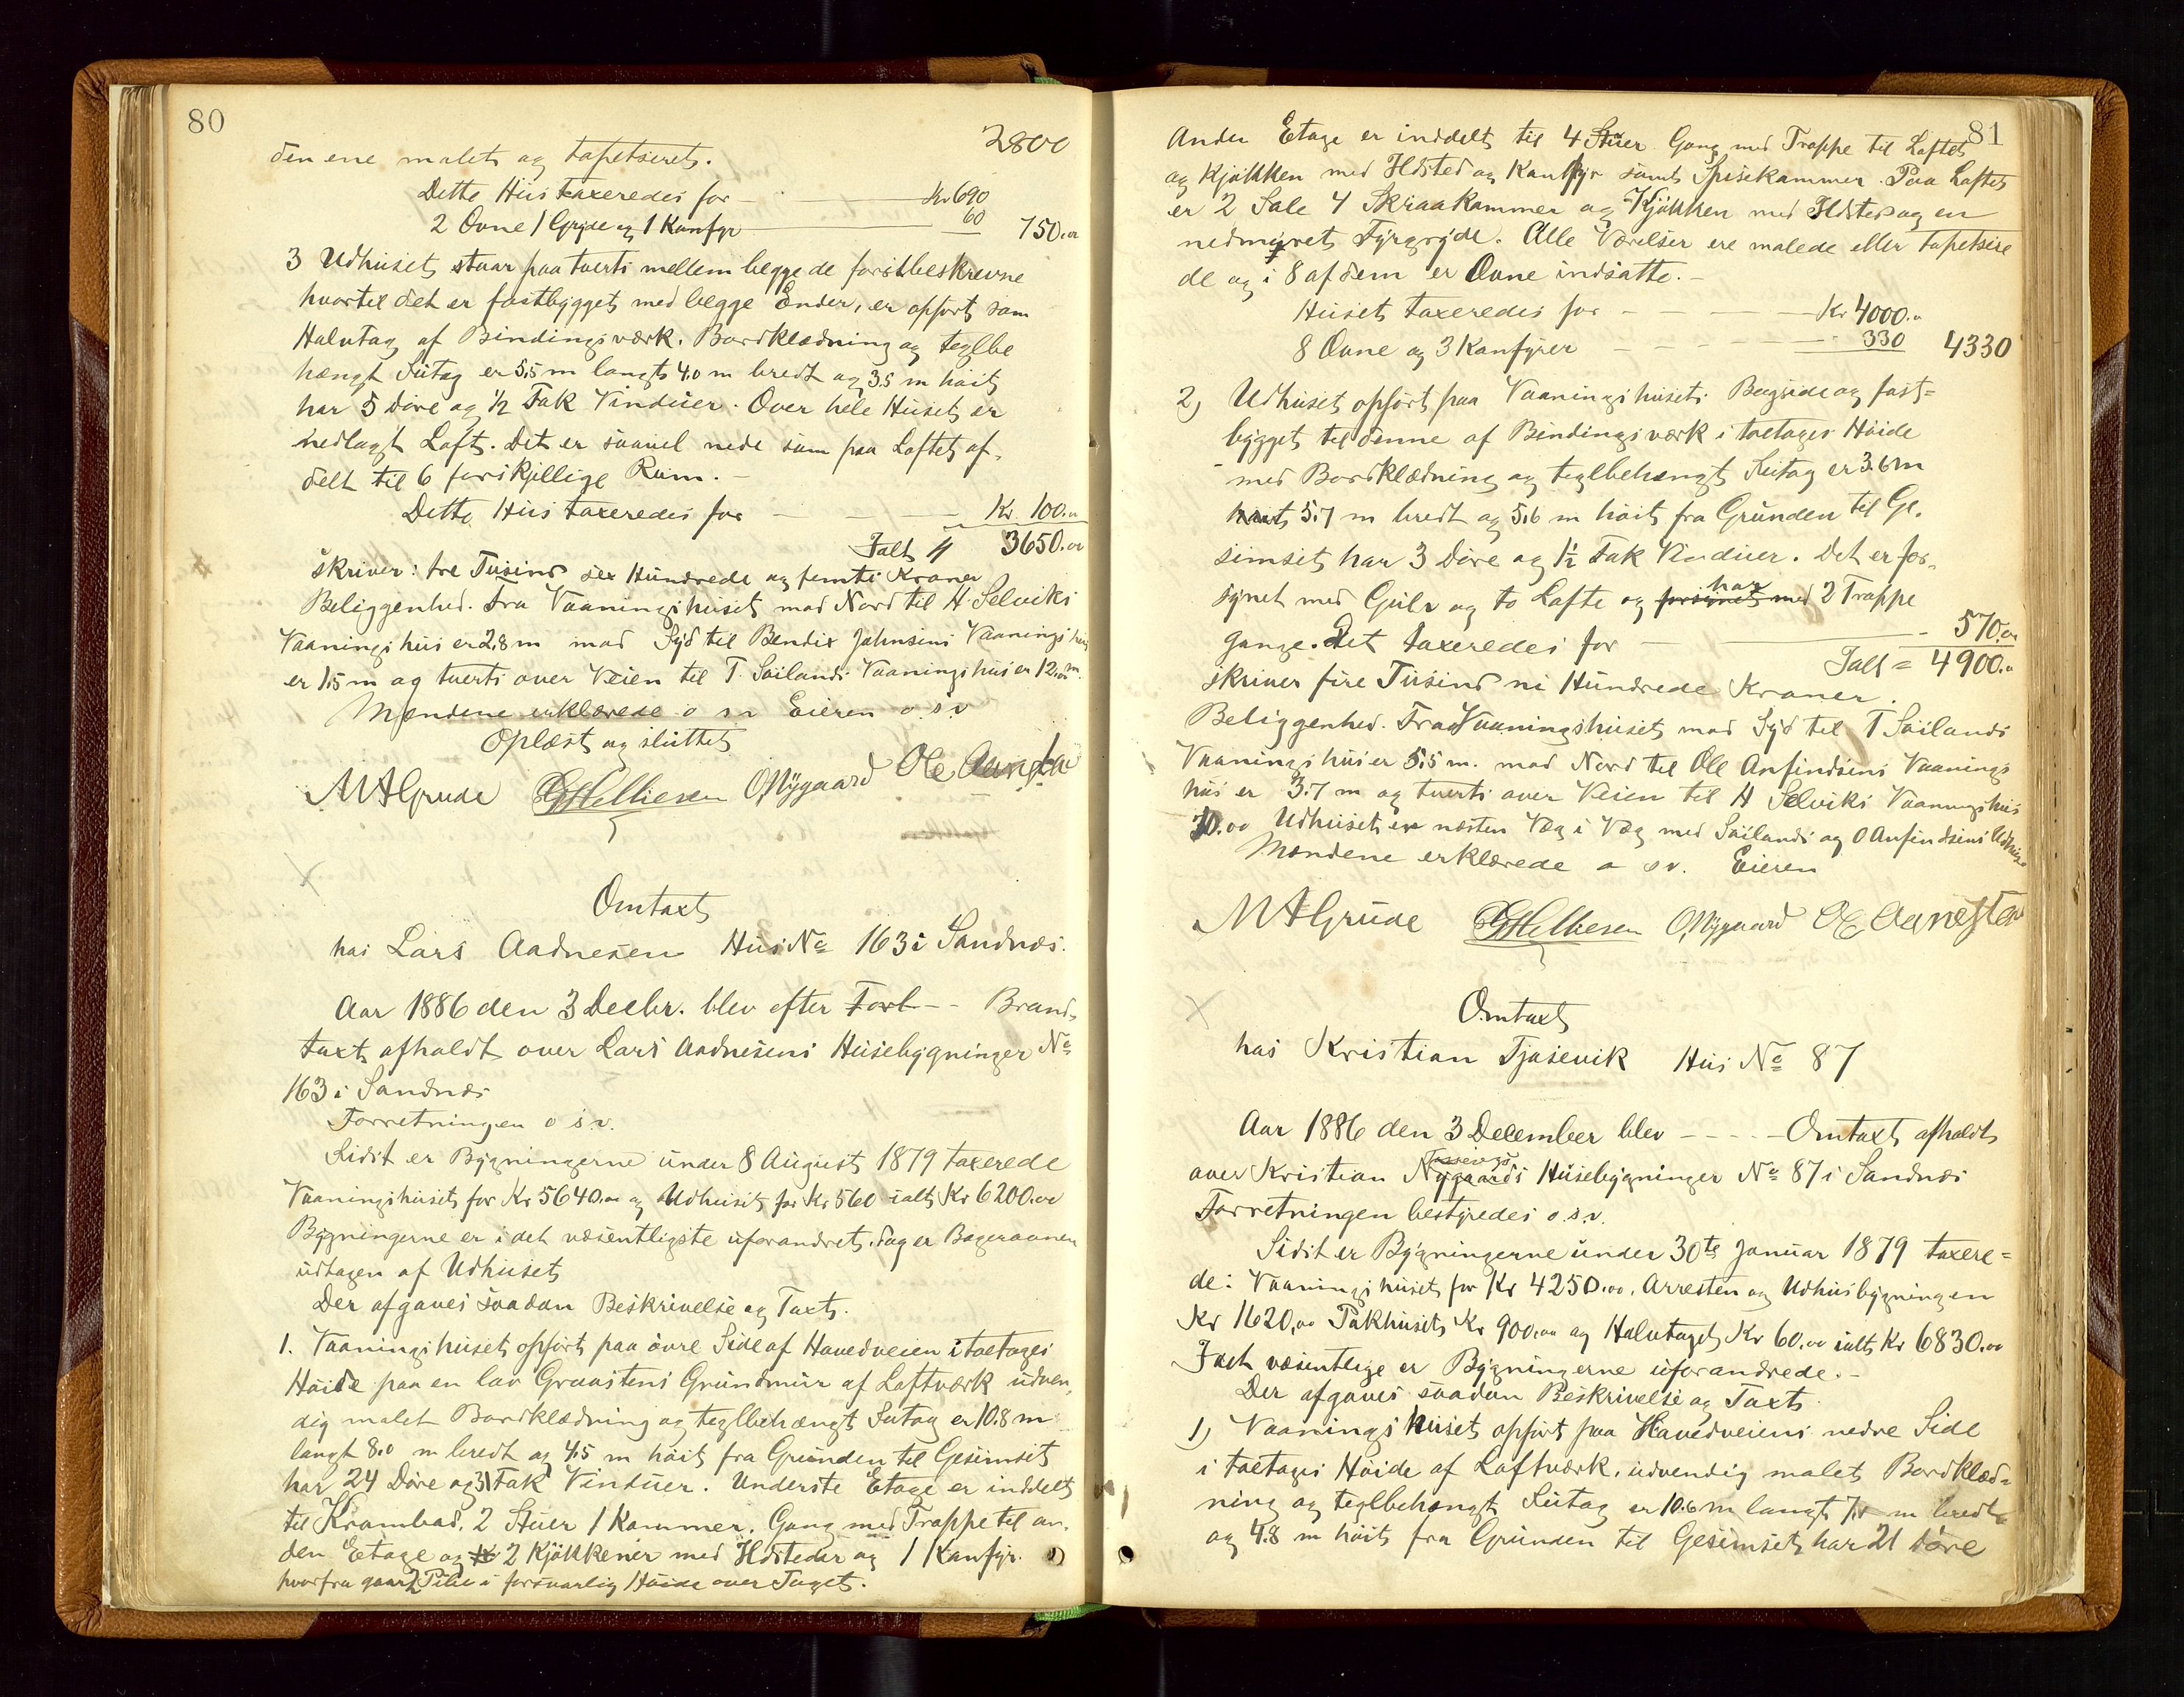 80
2800
den ene malet og tapetseret.
Dette Hus taxeredes for Kr 690
2 Ovne 1 Gryde og 1 Komfyr 60 750.00
3 Udhuset staar paa tverts mellem begge de forstbeskrevne
hvortil det er fastbygget med begge Ender, er opført som
Halvtag af Bindingsværk. Bordklædning og teglbe
hængt Sutag er 5,5 m langt 4.0 m bredt og 3,5 m høit
har 5 Døre og ½ Fak Vinduer. Over hele Huset er
nedlagt Loft. Det er saavel nede som paa Loftet af-
delt til 6 forskjellige Rum.
Dette Hus taxeredes for Kr. 100.00
Ialt 3650.00
skriver: tre Tusind sex Hundrede og femti Kroner
Beliggenhed. Fra Vaaningshuset mod Nord til H. Selviks
Vaaningshus er 2,8 m mod Syd til Bendix Johnsens Vaaningshus
er 1,5 m og tverts over Veien til T. Søilands Vaaningshus er 12.00 m.
Mændene erklærede o s v Eieren o.s.v
Oplæst og sluttet
M A Grude G Helliesen O Nygaard Ole Aanestad
Omtaxt
has Lars Aadnesen Hus No 163 i Sandnæs.
Aar 1886 den 3 Decbr. blev efter Forl - - Brand-
taxt afholdt over Lars Aadnesens Husebygninger No
163 i Sandnæs
Forretningen o s.v.
Sidst er Bygningerne under 8 August 1879 taxerede
Vaaningshuset for Kr 5640.00 og Udhuset for Kr 560 ialt Kr 6200.00
Bygningerne er i det væsentligste uforandret. dog er Bagerovnen
udtagen af Udhuset
Der afgaves saadan Beskrivelse og Taxt.
1. Vaaningshuset opført paa øvre Side af Hovedveien i toetages
Høide paa en lav Graastens Grundmur af Laftværk udven-
dig malet Bordklædning og teglbehængt Sutag er 10.8 m
langt 8.0 m bredt og 4,5 m høit fra Grunden til Gesimset
har 24 Døre og 31 Fak Vinduer. Underste Etage er inddelt
til Krambod, 2 Stuer 1 Kammer. Gang med Trappe til an-
den Etage og 2 Kjøkkener med Ildsteder og 1 Komfyr.
hvorfra gaar 2 Piber i forsvarlig Høide over Taget.
81
Anden Etage er inddelt til 4 Stuer Gang med Trappe til Loftet
og Kjøkken med Ildsted og Komfyr samt Spisekammer. Paa Loftet
er 2 Sale 4 Skraakammer og Kjøkken med Ildsted og en
nedmuret Fyrgryde. Alle Værelser ere malede eller tapetsere
de og i 8 af dem er Ovne indsatte.
Huset taxeredes for - - - - Kr 4000.00
8 Ovne og 3 Komfyrer - - - - 330 4330
2) Udhuset opført paa Vaaningshusets Bagside og fast=
bygget til denne af Bindingsværk i toetages Høide
med Bordklædning og teglbehængt Sutag er 3.6 m
5.7 m bredt og 5,6 m høit fra Grunden til Ge-
simset har 3 Døre og 1½ Fak Vinduer. Det er for-
synet med Gulv og to Lofte og forsynet med har 2 Trappe
gange. Det taxeredes for 570.00
Ialt = 4900.00
skriver fire Tusind ni Hundrede Kroner.
Beliggenhed. Fra Vaaningshuset mod Syd til T Søilands
Vaaningshus er 5,5 m. mod Nord til Ole Anfindsens Vaanings
hus er 3.7 m og tverts over Veien til H Selviks Vaaningshus
10.00 Udhuset er næsten Væg i Væg med Søilands og O Anfindsens Udhuse
Mændene erklærede o s v. Eieren
M A Grude G Helliesen O Nygaard Ole Aanestad
Omtaxt
has Kristian Tjøsevik Hus No 87
Aar 1886 den 3 December blev - - - - Omtaxt afholdt
over Kristian Nygaards Husebygninger No 87 i Sandnæs
Forretningen bestyredes o.s.v.
Sidst er Bygningerne under 30te Januar 1879 taxere=
de: Vaaningshuset for Kr 4250.00. Arresten og Udhusbygningen
Kr 1620,00 Pakhuset Kr 900.00 og Halvtaget Kr 60.00 ialt Kr 6830.00
I det væsentlige er Bygningerne uforandrede.
Der afgaves saadan Beskrivelse og Taxt
1) Vaaningshuset opført paa Hovedveiens nedre Side
i toetages Høide af Laftværk, udvendig malet Bordklæd=
ning og teglbehængt Sutag er 10.6 m langt m bredt
og 4.8 m høit fra Grunden til Gesimset, har 21 Døre